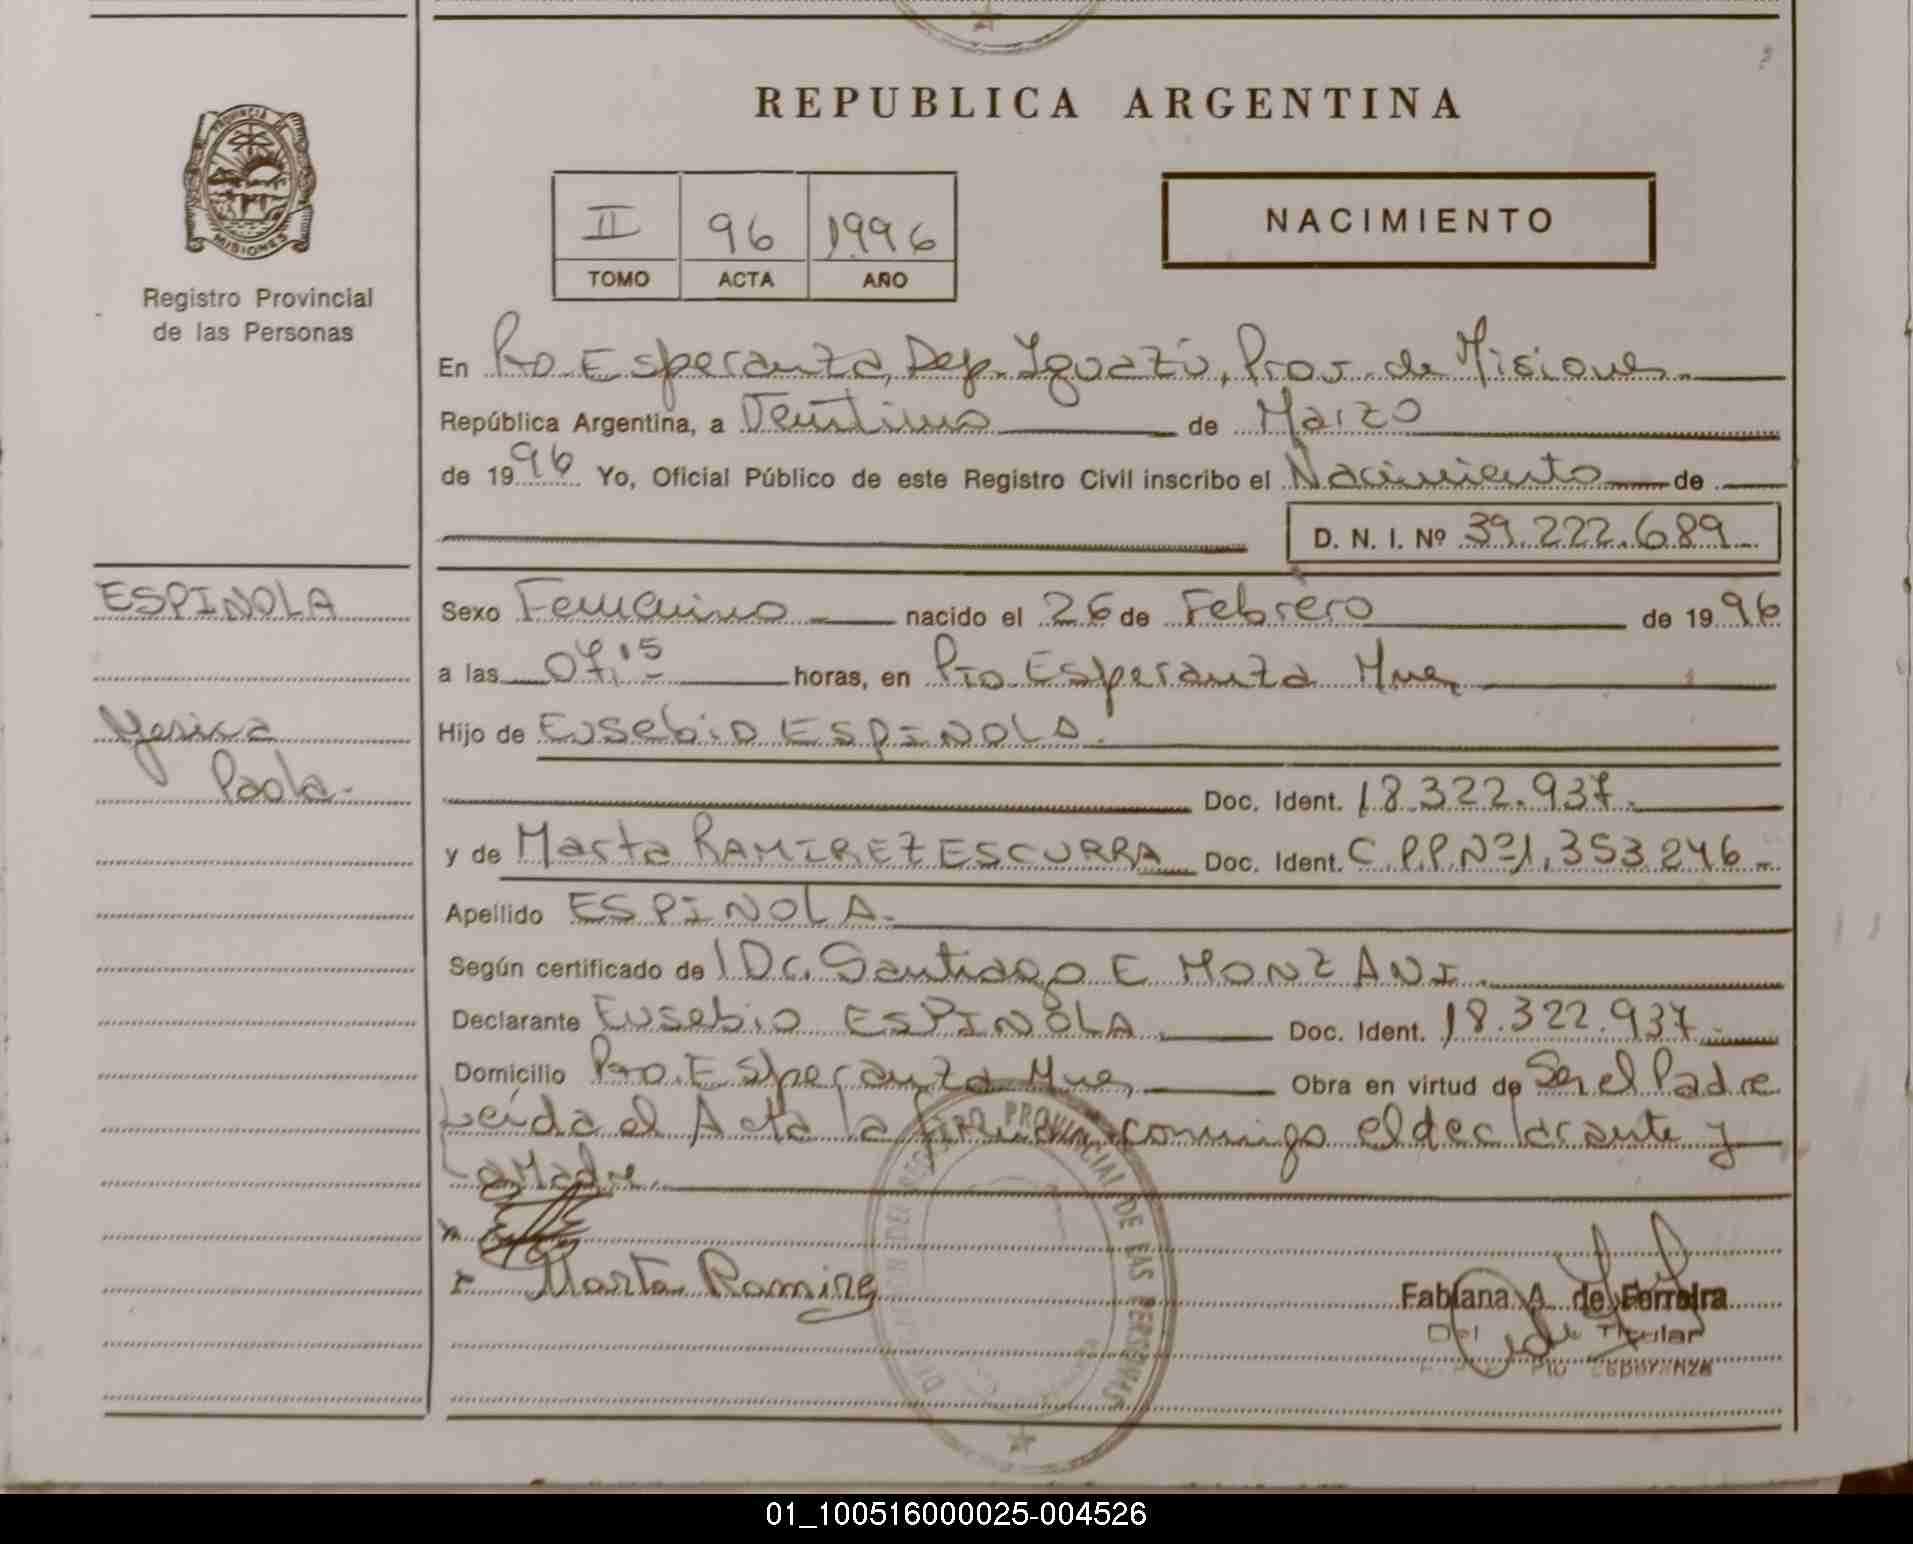 REPUBLICA ARGENTINA
PROVINCIA DE MISIONES
Registro Provincial
de las Personas
II 96 1996
TOMO ACTA AÑO
NACIMIENTO
En Pto. Esperanza, Dep. Iguazú, Prov. de Misiones
República Argentina, a Veintiuno de Marzo
de 1996 Yo, Oficial Público de este Registro Civil inscribo el Nacimiento de
D. N. I. Nº 39.222.689
ESPINOLA
Yesica
Paola.
Sexo Femenino nacido el 26 de Febrero de 1996
a las 07,15 horas, en Pto Esperanza Mnes
Hijo de Eusebio ESPINOLA.
Doc. Ident. 18.322.937.
y de Marta RAMIREZ ESCURRA Doc. Ident. C.P.P.Nº1.353.246
Apellido ESPINOLA.
Según certificado de Dr. Santiago E MONZANI.
Declarante Eusebio ESPINOLA. Doc. Ident. 18.322.937.
Domicilio Pto. Esperanza Mnes, Obra en virtud de Ser el Padre
Leída el Acta la firman conmigo el declarante y
La Madre.
Marta Ramirez
REGISTRO PROVINCIAL DE LAS PERSONAS
Fabiana A. de Ferreira
Titular
Pto Esperanza
01_100516000025-004526